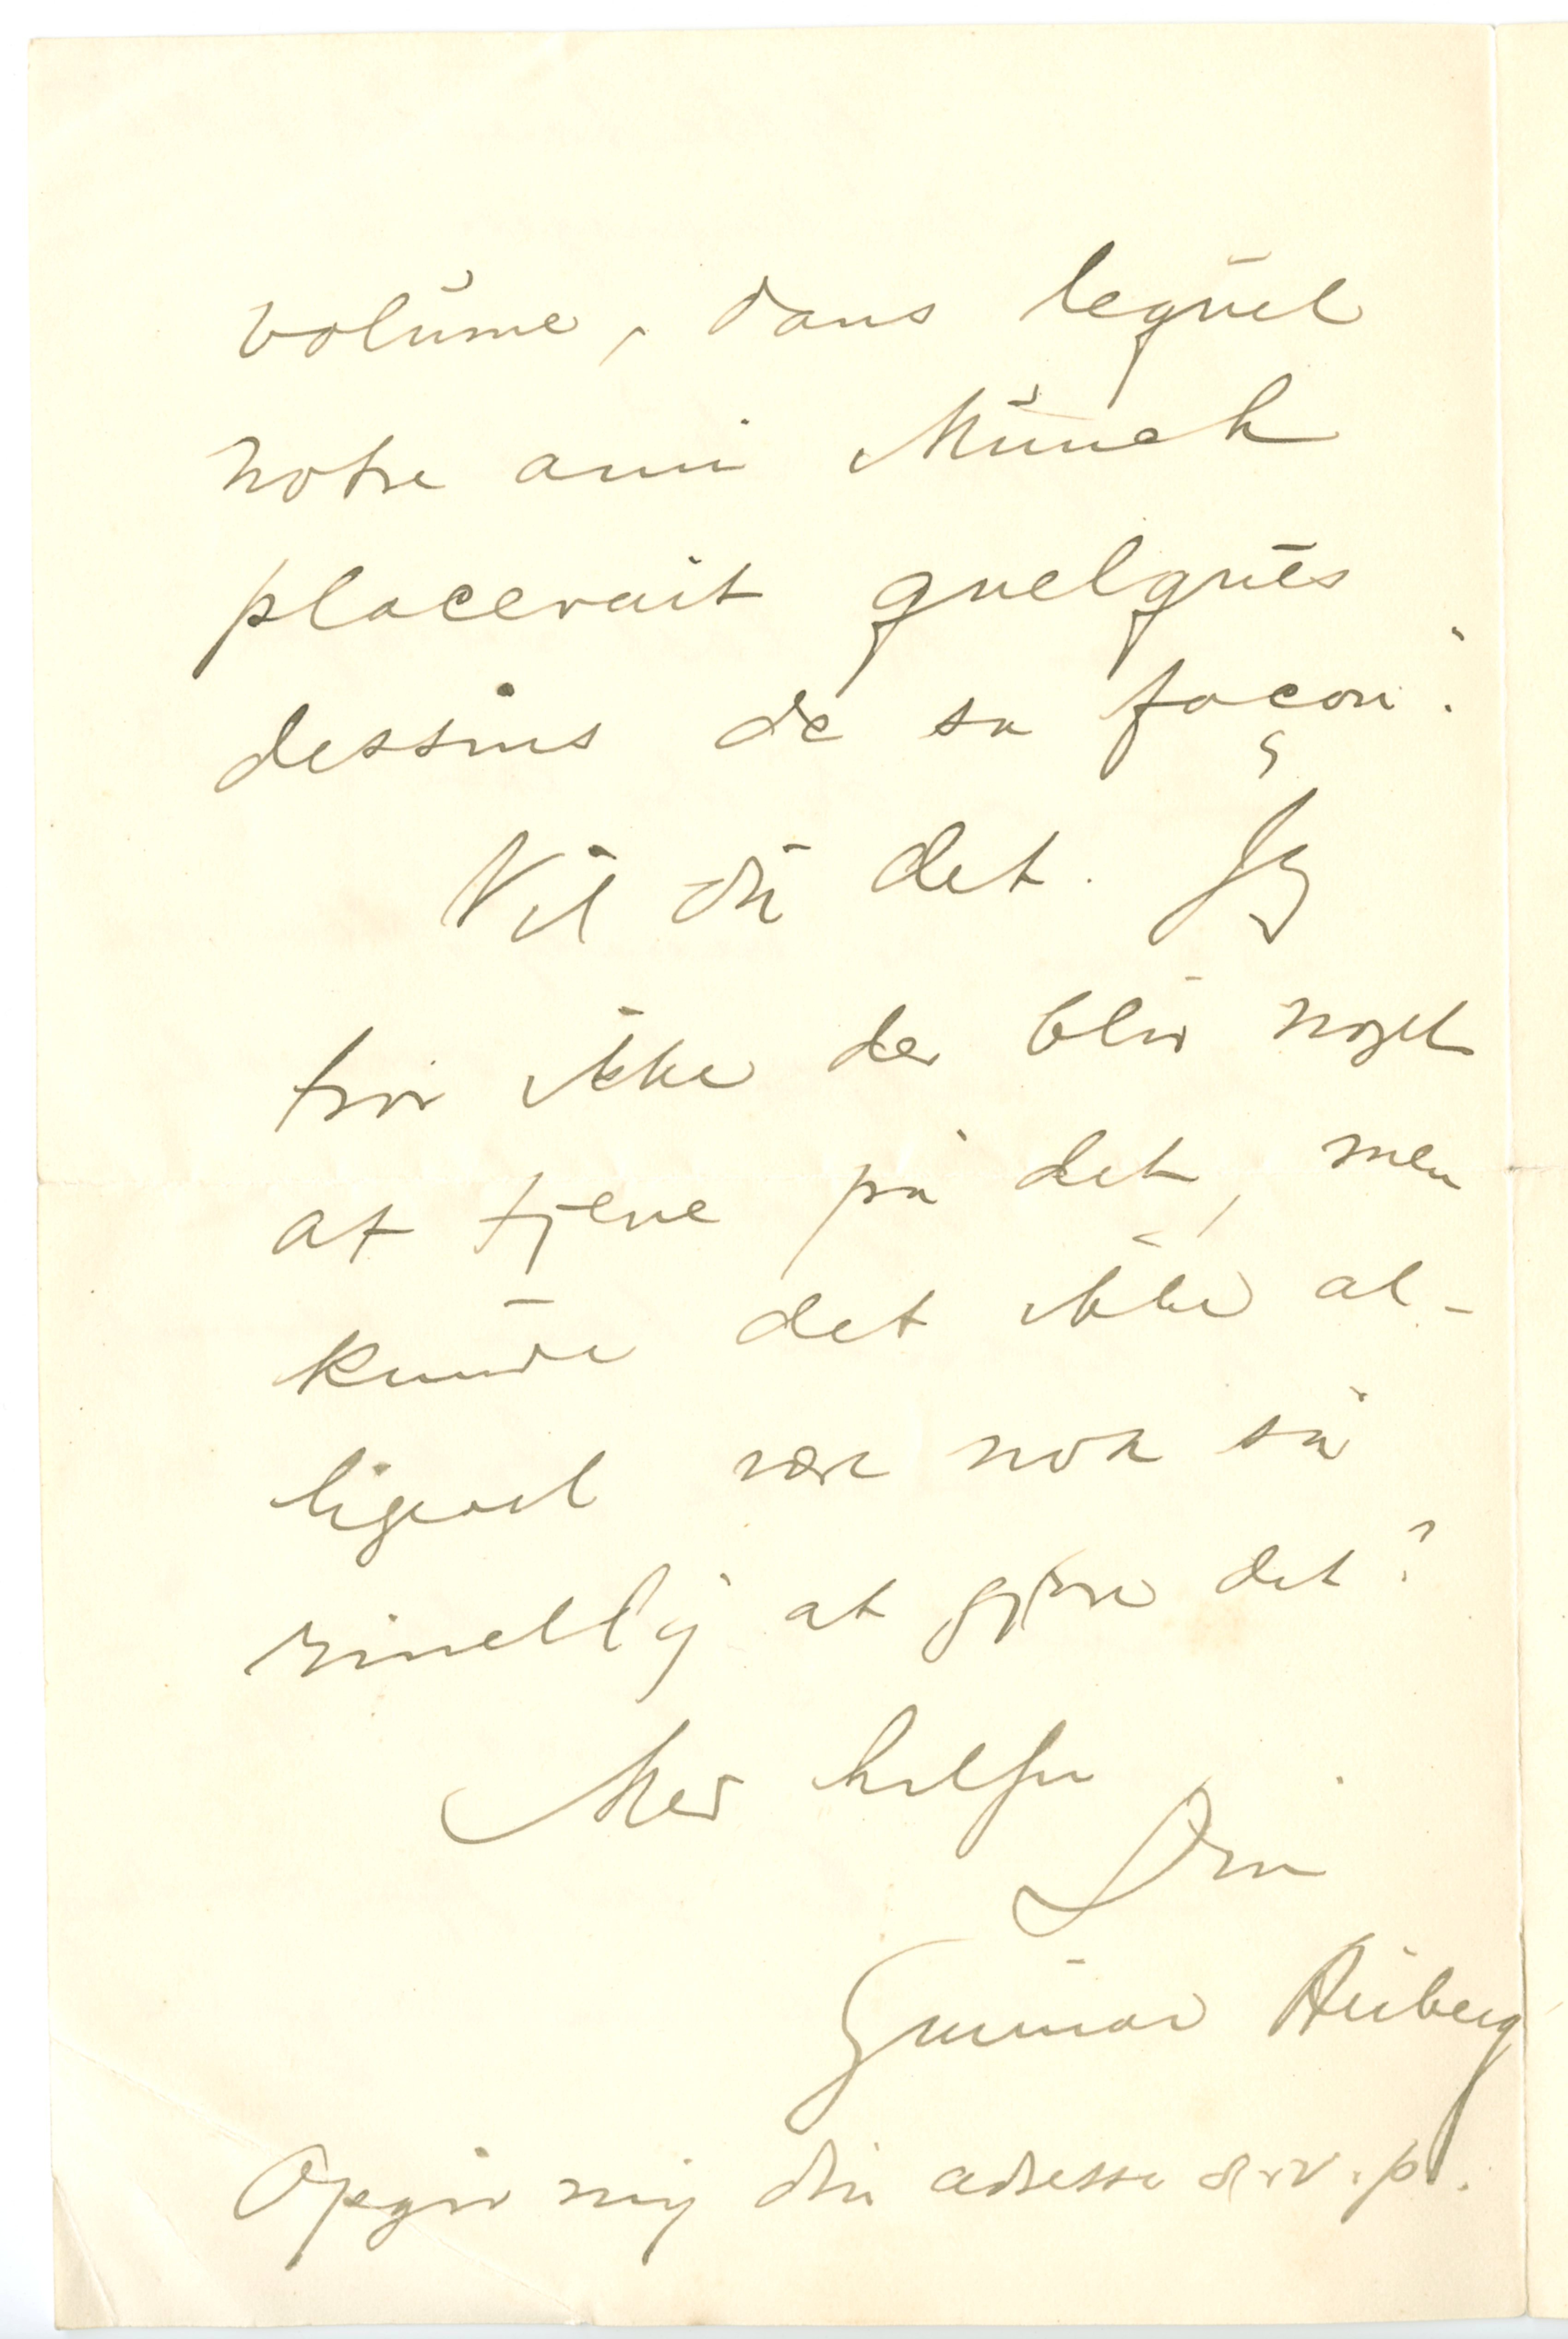 volume, dans lequel
notre ami Munch
placerait quelques
dessins de sa façon".
Vil du det. Jeg
tror ikke der blir noget
at tjene på det, men
kunde det ikke al-
ligevel være nok så
rimelig at gjøre det?
Med hilsen
Din
Gunnar Heiberg
Opgiv mig din adresse s.v.p.